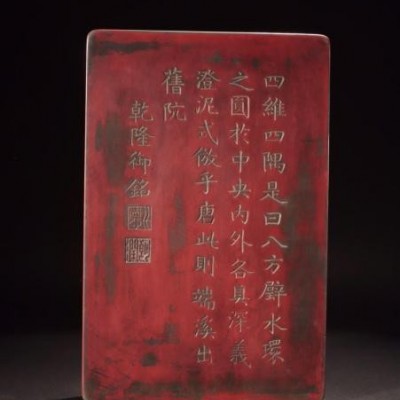 四維四隅是曰八方璧水環
之圓於中央内外各具深義
澄泥式倣乎唐此則端溪出
舊阬
乾隆御銘